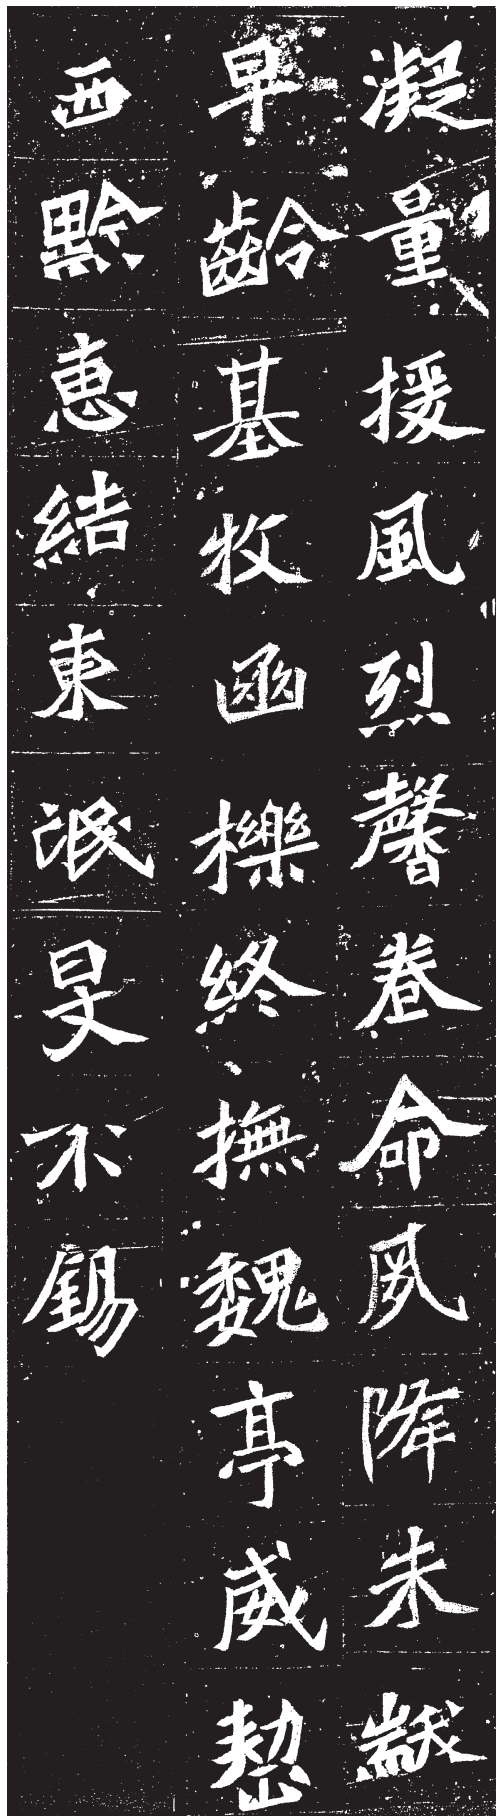 凝量援風烈馨眷命夙降朱黻
早齡基牧函櫟終撫魏亭威㓞
西黔惠結東氓旻不錫